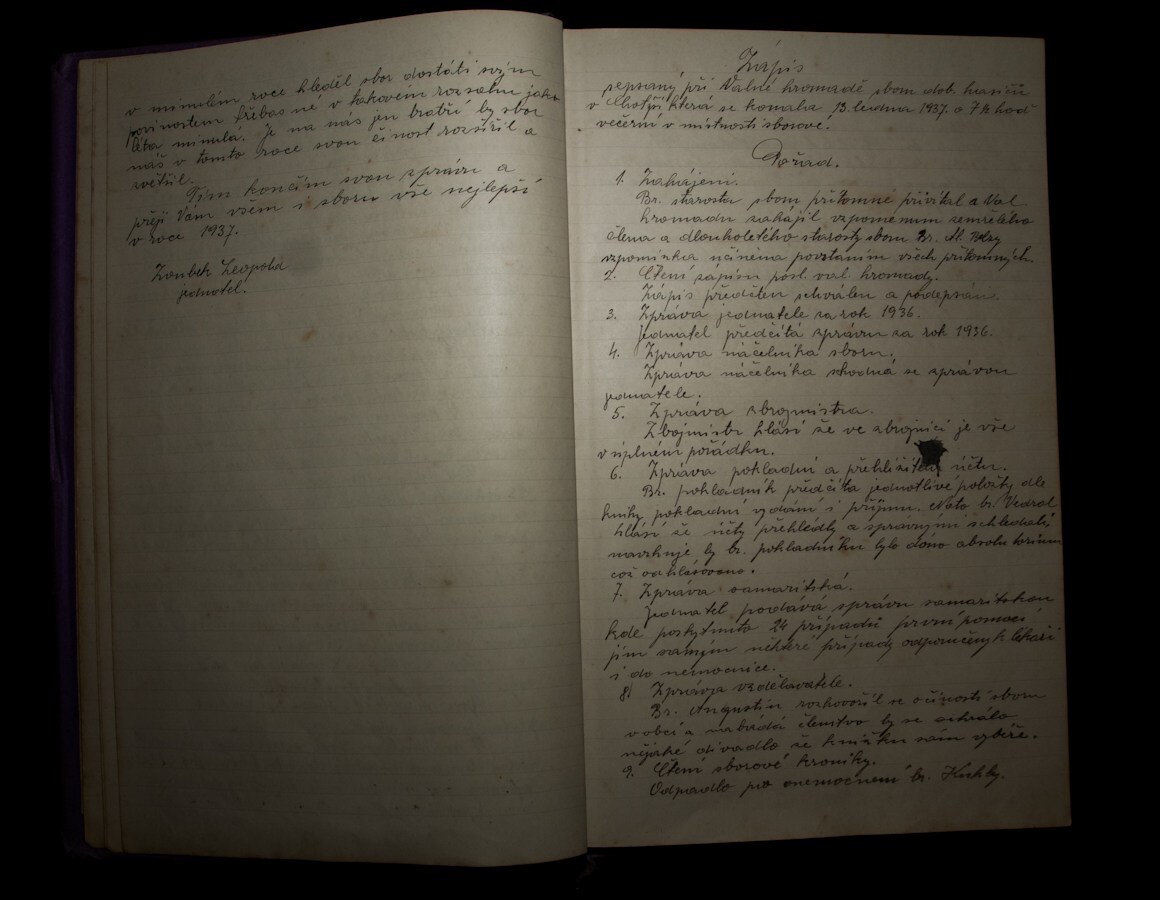 v minulém roce hleděl sbor dostáti svým
povinostem třebas né v takovém rozsahu jako
léta minulá. Je na nás jen bratří by sbor
náš v tomto roce svou činost rozšířil a
zvětšil.
Tím končím svou zprávu a
přeji Vám všem i sboru vše nejlepší
v roce 1937.
Zoubek Leopold
jednatel.
Zápis
sepsaný při Valné hromadě sboru dob. hasičů
v která se konala 13. ledna 1937. o 7 h hod
večerní v místnosti sborové.
Pořad.
1. Zahájení.
Br. starosta sboru přítomné přivítal a Val
hromadu zahájil vzpomenum zemřelého
člena a dlouholetého starosty sboru Br. Al.
vzpomínka učiněna povstáním všech přítomných.
2. Čtení zápisu posl. val. hromady.
Zápis předčten schválen a podepsán.
3. Zpráva jednatele za rok 1936.
Jednatel předčítá zprávu za rok 1936.
4. Zpráva náčelníka sboru.
Zpráva náčelníka shodná se zprávou
jednatele.
5. Zpráva zbrojmistra.
Zbojmistr hlásí že ve zbrojnici je vše
v úplném pořádku.
6. Zpráva pokladní a přehlížitelů účtu.
Br. pokladník předčíta jednotlivé položky dle
knihy pokladní vydání i příjmu. Nato br. Vedral
hlásí že účty přehlédly a spravnými schledali
navrhuje by br. pokladníku bylo dáno absolutorium
což odhlasováno.
7. Zpráva samaritská.
Jednatel podává zprávu samaritskou
kde poskytnuto 24 případů první pomoci
jím samým některé případy odporučeny k lékaři
i do nemocnice.
8) Zpráva vzdělavatele.
Br. Augustin rozhovořil se o činosti sboru
v obci a nabádá členstvo by se sehrálo
nějaké divadlo že knížku sám vybíře.
9. Čtení sborové kroniky.
Odpadlo pro onemocnění br.